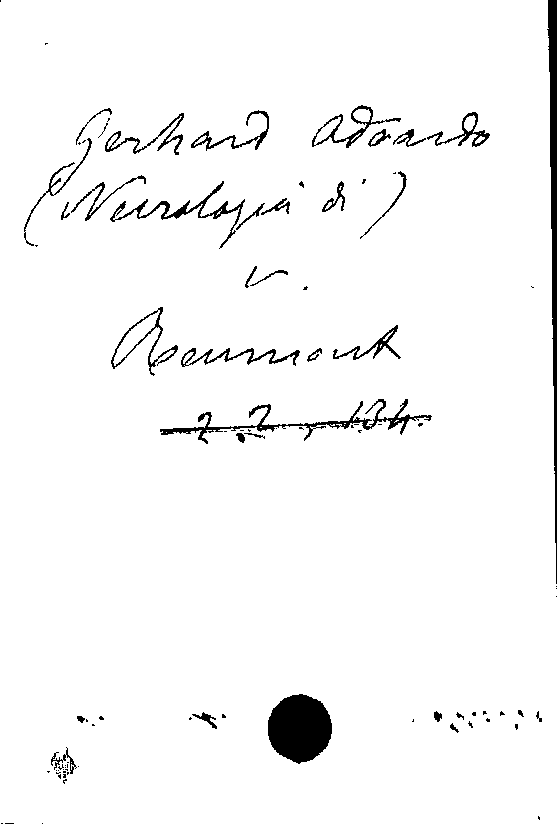 Gerhard Odoardo
(Necrologia di)
v.
Reumont
2.2, 134.